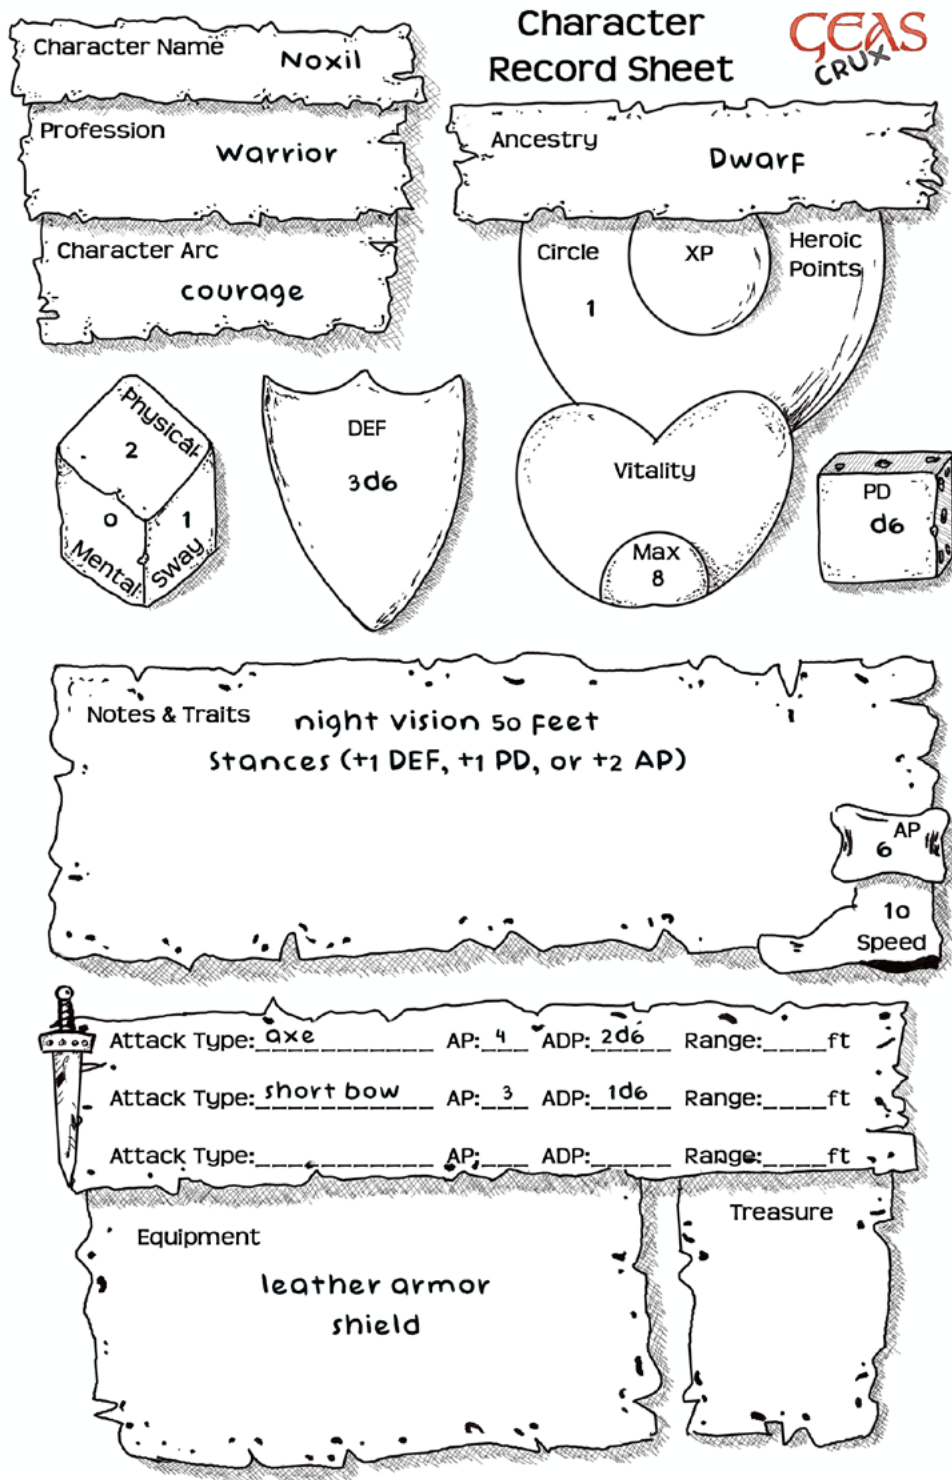 Character
Record Sheet
GEAS
CRUX
Character Name Noxil
Profession
Warrior
Character Arc
courage
Ancestry
Dwarf
Circle
1
XP
Heroic
Points
Physical
2
0
Mental
1
Sway
DEF
3d6
Vitality
Max
8
PD
d6
Notes & Traits night vision 50 feet
Stances (+1 DEF, +1 PD, or +2 AP)
AP
6
10
Speed
Attack Type: axe AP: 4 ADP: 2d6 Range:_____ft
Attack Type: short bow AP: 3 ADP: 1d6 Range:_____ft
Attack Type:______________ AP:____ ADP:______ Range:_____ft
Equipment
leather armor
shield
Treasure